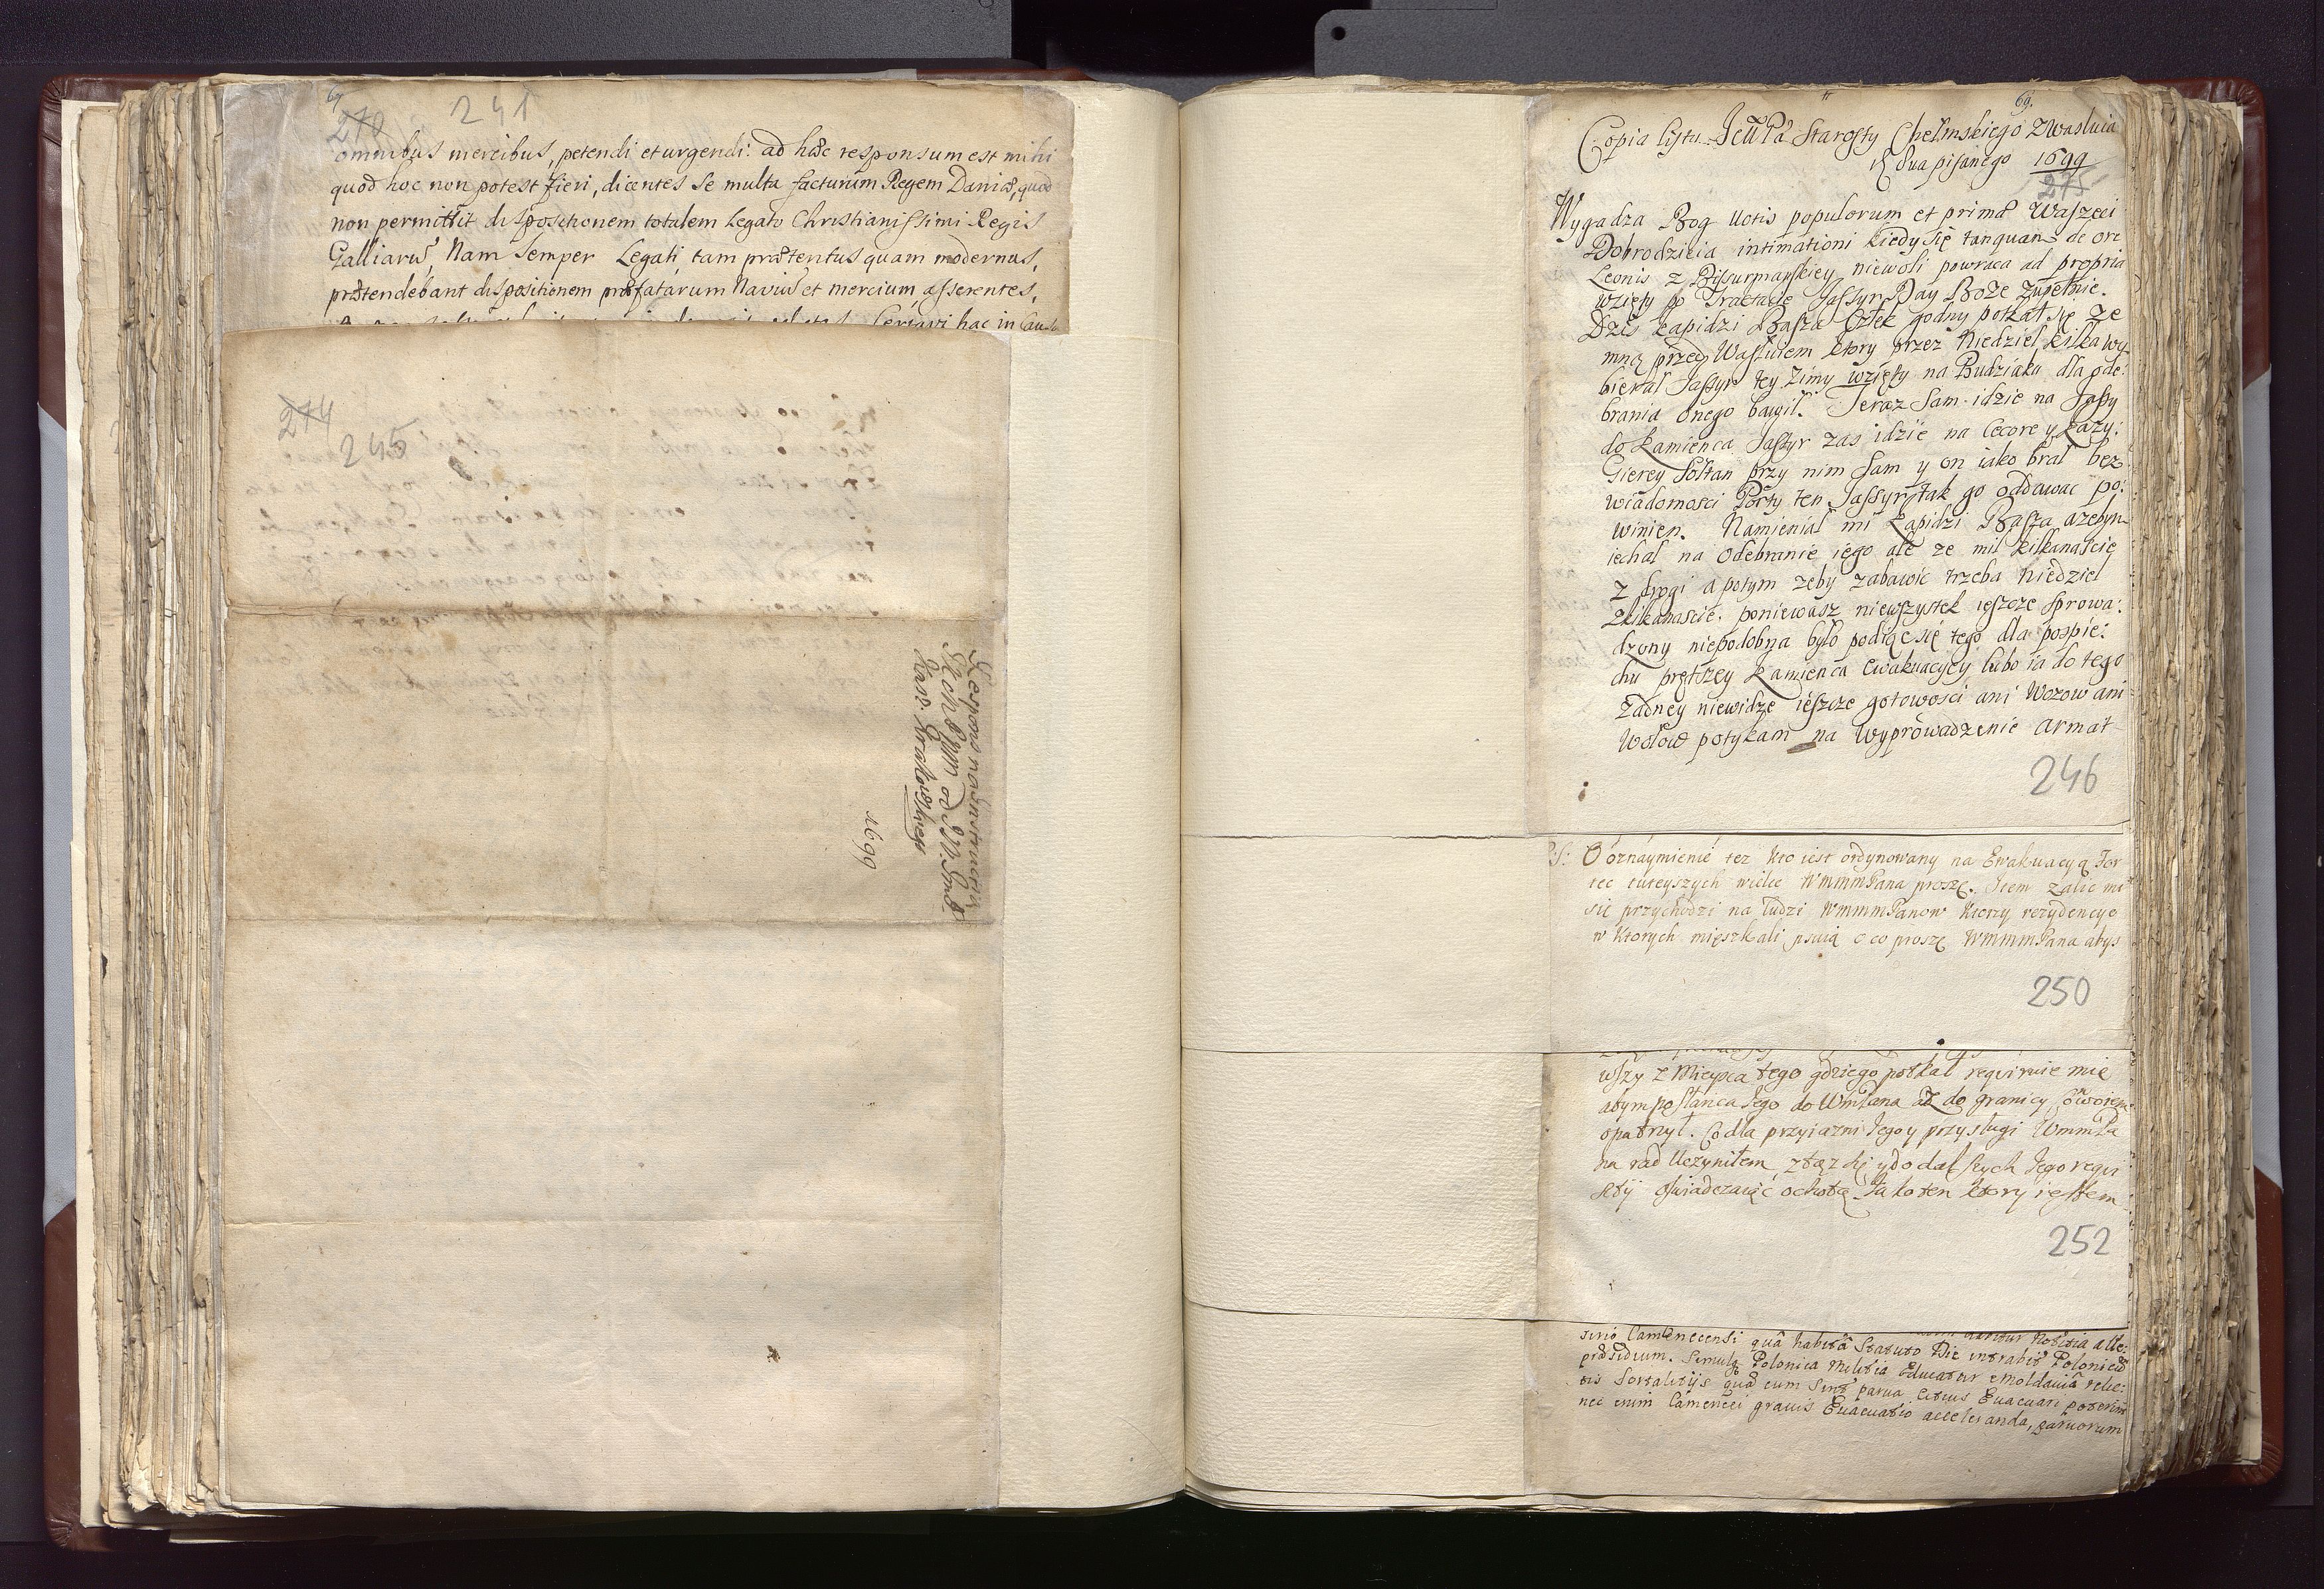 67
270 241
omnibus mercibus, petendi et urgendi: ad hæc responsum est mihi
quod hoc non potest fieri, dicentes se multa facturum Regem Daniæ, quod
non permittit dispositionem totalem Legato Christianissimi Regis
Galliarũ, Nam semper Legati tam prætentus quam modernus,
prætendebant dispositionem præfatarum Naviũ et mercium, asserentes,
hac in
274
245
Respons na Instructią
1699
69.
Copia listu Jeũ Pã Starosty Chełmskiego z Wasluia
dua pisanego 1699
275
Wygadza Bog votis populorum et primæ Waszeci
Dobrodzieia intimationi kiedy się tanquam de ore
Leonis z Bissurmanskiey niewoli powraca ad propria
wzięty po Tractacie Jassyr Day Boże zupełnie.
Dziś Kapidzi Basza Człek godny potkał się ze
mną przed Wasluiem ktory przez Niedziel kilka wy
bierał Jassyr tey Zimy wzięty na Budziaku dla ode:
brania onego bawił. Teraz sam idzie na Jassy
do Kamienca Jassyr zas idzie na Cecorę y Kazy:
Gierey Sołtan przy nim sam y on iako brał bez
wiadomosci Porty ten Jassyr tak go oddawac po:
winien. Namieniał mi Kapidzi Basza azebym
iechał na odebranie iego ale ze mil kilkanascie
z drogi a potym zeby zabawić trzeba Niedziel
zkilkanascie. poniewasz niewszystek ieszcze sprowa:
dzony niepodobna było podiąc się tego dla pospie:
chu prętszey Kamienca Ewakuacyey lubo ia do tego
żadney niewidzę ieszcze gotowosci ani Wozow ani
Wołow potykam na wyprowadzenie Armat
246
PS: O oznaymienie tez kto iest ordynowany na Ewakuacyą For
tec tuteyszych wielce WmmmPana proszę. Item zalic mi
się przychodzi na ludzi WmmmPanow ktorzy rezydencye
w ktorych mięszkali psuią o co proszę WmmmPana abys
250
wszy z Mieysca tego gdziego potkał requiruie mię
abym posłanca Jego do WmPana aż do granicy
opatrzył. Co dla przyiazni Jego y przysługi WmmPa
na rad uczyniłem, y do dalszych Jego requi
oswiadczaiąć ochotę Jako ten ktory iestem
252
Notitia
sirio Camenecensi quâ habitâ Statuto Die intrabit Polonicũ
præsidium. Simulq̃ Polonica Militia Educatur e Moldauiâ relic:
tis fortalitijs quæ cum sint parua citius Euacuari poterint
nec enim Cameneci grauis Euacuatio acceleranda, paruorum